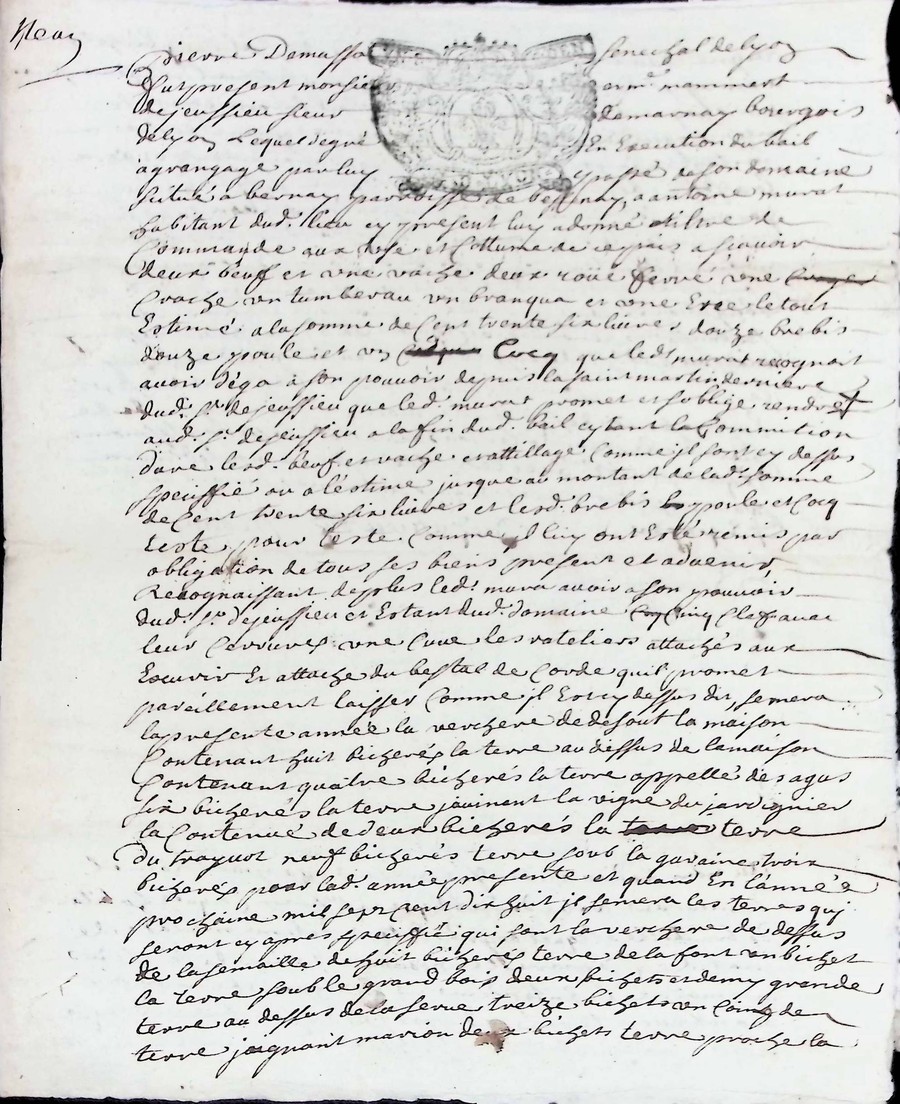 Pierre Demasso senechal de lyon
Fut present monsieur mammert
dejeussieu sieur demarnay bourgois
delyon Lequel degré En Execution du bail
agrangage par luy passé de son domaine
situé a bernay parroisse de bessenay, a antoine murat
habitant dud. lieu cy present luy a donné a tiltre de
Commande aux use et Cottume de ce pais a scavoir
deux beuf et une vache deux roue ferré une
Crache un tumbereau un branqua et une Erce le tout
Estimé a la somme de Cent trente six livres douze brebis
douze poule et un Cocq que led. murat recognoit
avoir déga a son pouvoir depuis la saint martin derniere
dud. Sr. dejeussieu que led. murat promet et soblige rendre
aud. Sr. dejeussieu a la fin dud. bail
lesd. beuf et vache et attillage Comme jl sont cy dessus
speciffié ou a léstime jusque au montant de lad. somme
de Cent trente six livres et lesd. brebis poule et Cocq
teste pour teste Comme jl luy ont Esté remis par
obligation de tous ses biens present et advenir,
Recognaissant de plus led. murat avoir a son pouvoir
dud. Sr. dejeussieu et Estant dud. domaine Cinq Clef avec
leur Cerrures une Cuve les rateliers attachés aux
Escurir Et attache du bestal de Corde quil promet
pareillement laisser Comme jl Est cy dessus dit, semera
la presente année la verchere de desout la maison
Contenant huit bicherés la terre au dessus de la maison
Contenant quatre bicherés la terre appellé des agas
six bicherés la terre joinent la vigne du jardignier
la Contenué de deux bicherés la terre
du trayvot neuf bicherés terre soub la garaine troix
bicherés pour lad. année presente et quand En lánnéé
prochaine mil sept cent dix huit jl semera les terres qui
seront cy apres speciffié qui sont la verchere de dessus
de la semaille de huit bicherés terre de la font un bichet
la terre soub le grand bois deux bichets et demy grande
terre au dessus de la serve treize bichets un Coing de
terre joignant marion deux bichets terre proche la